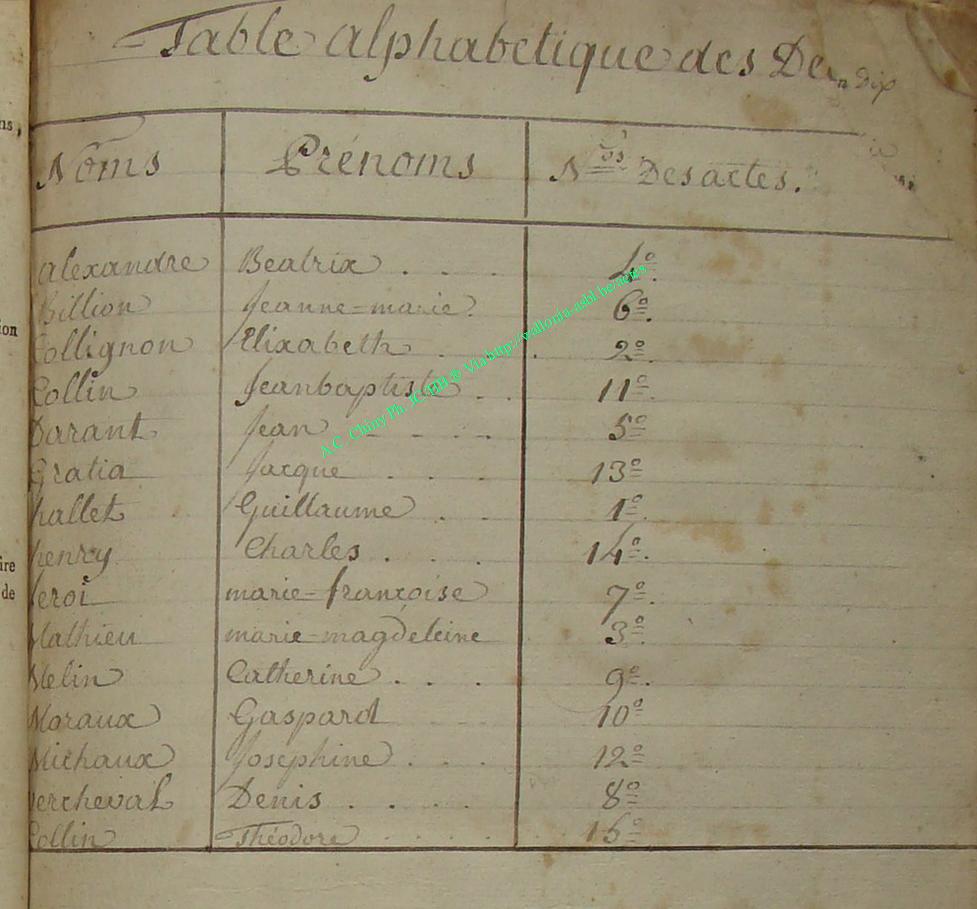 Table alphabetique des
Noms Prénoms Nos Des actes.
alexandre Beatrix . . . 4º.
Billion Jeanne=marie. 6º.
Collignon Elixabeth . . . 2º.
Collin Jeanbaptiste . . 11º
Darant Jean . . . . 5º
Gratia Jacque . . . 13º
hallet Guillaume . . 1º.
henry Charles . . . 14º.
leroi marie=françoise 7º.
Mathieu marie=magdeleine 3º.
Melin Catherine . . . 9º.
Moraux Gaspard 10º
Michaux Josephine . . . 12º
vercheval Denis . . . . 8º
Collin Théodore . . . . 15º
ns,
ion
ire
de
A.C. Chiny Ph. JC.HH & Via http://wallonia-asbl.be/actes